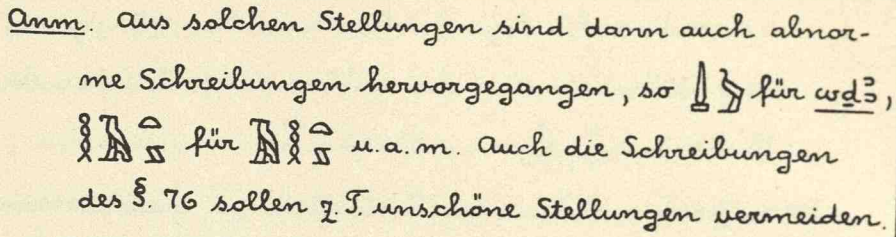 Anm. Aus solchen Stellungen sind dann auch abnor-
me Schreibungen hervorgegangen, so für wḏꜣ,
für u. a. m. Auch die Schreibungen
des §. 76 sollen z. T. unschöne Stellungen vermeiden.